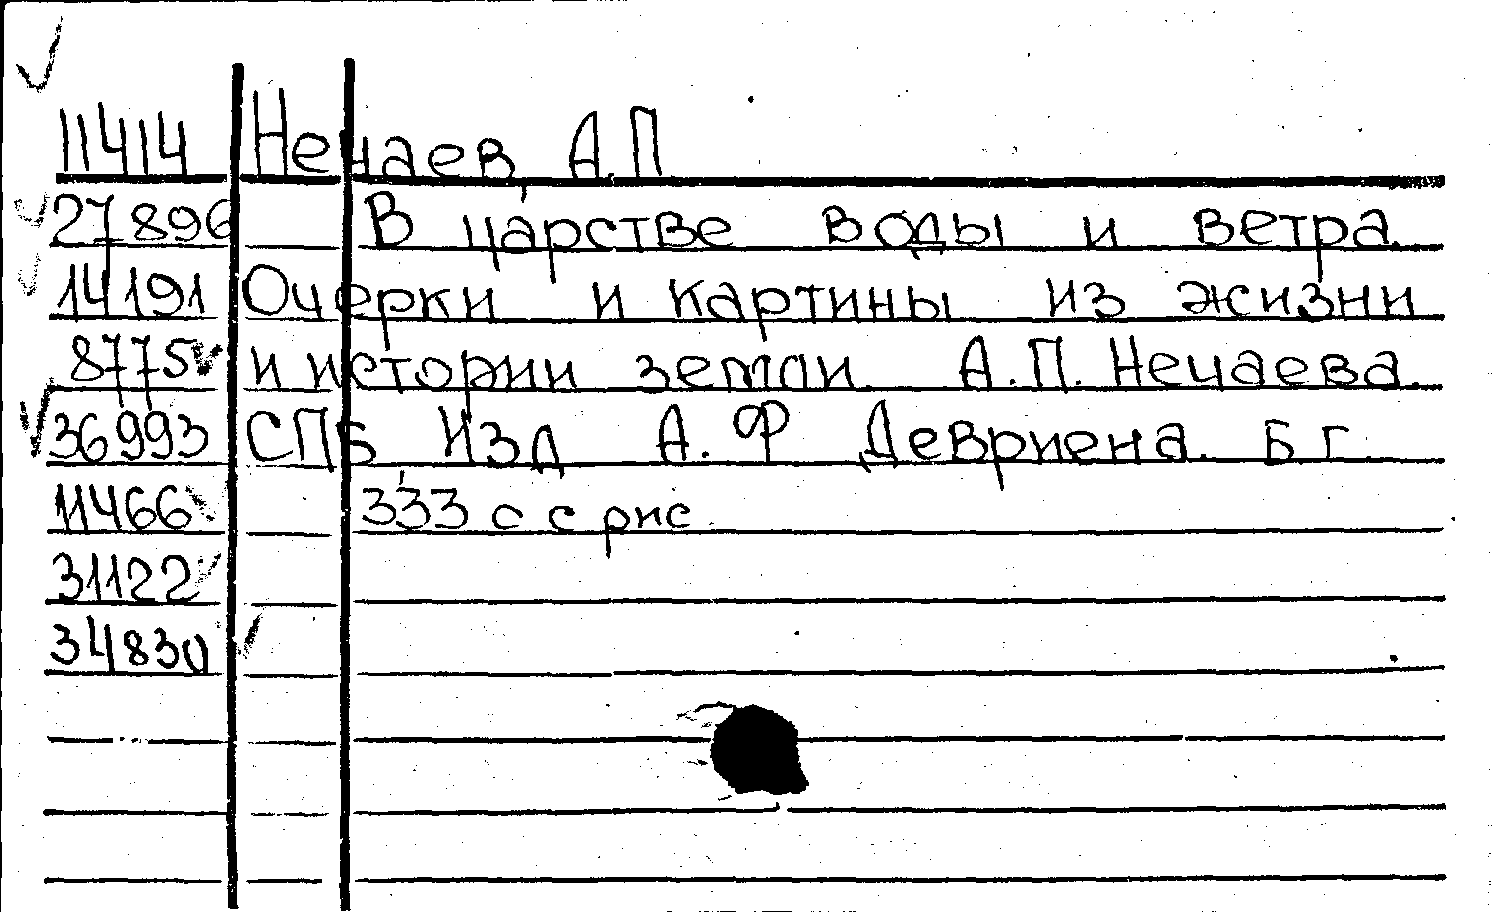 11414 Нечаев, А.П.
27896 В царстве воды и ветра.
14191 Очерки и картины из жизни
8775 и истории земли А.П. Нечаева.
36993 СПБ Изд А. Ф Девриена. Б г.
11466 333 с с рис
31122
34830